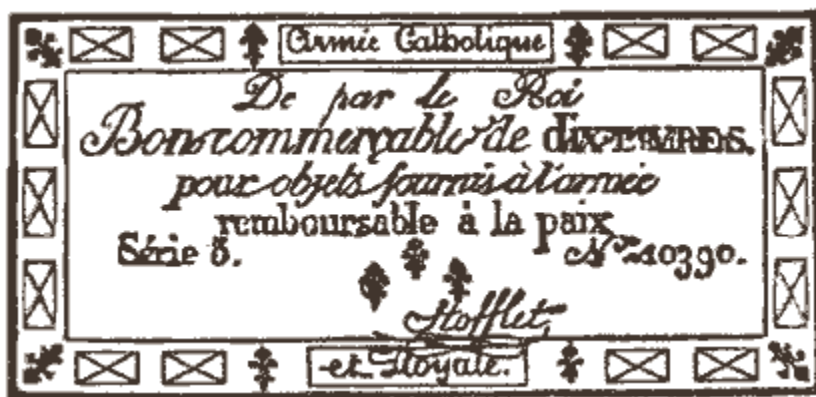 Armée Catholique
De par le Roi
Bon commerçable de dix LIVRES.
pour objets fournis à l'armée
remboursable à la paix
Série 3. N° 10390.
Stofflet,
et Royale.